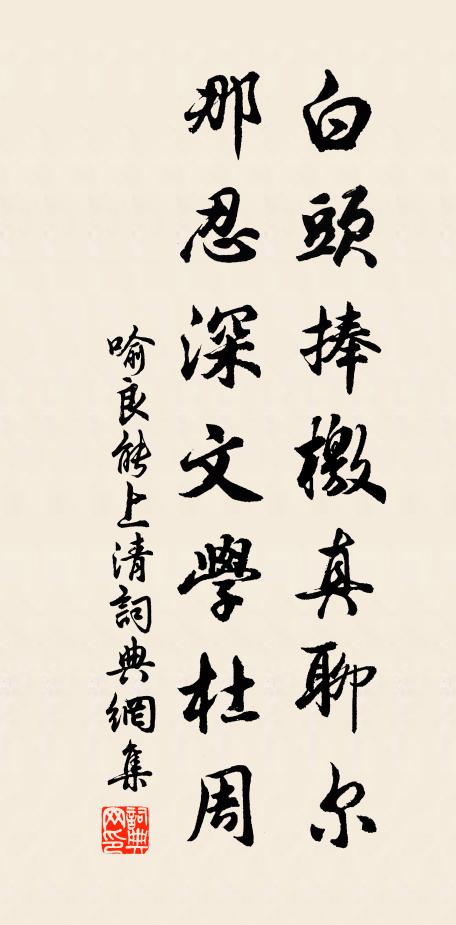 白頭捧檄真聊尔
那忍深文學杜周
喻良能上清詞典網集
詞典网印